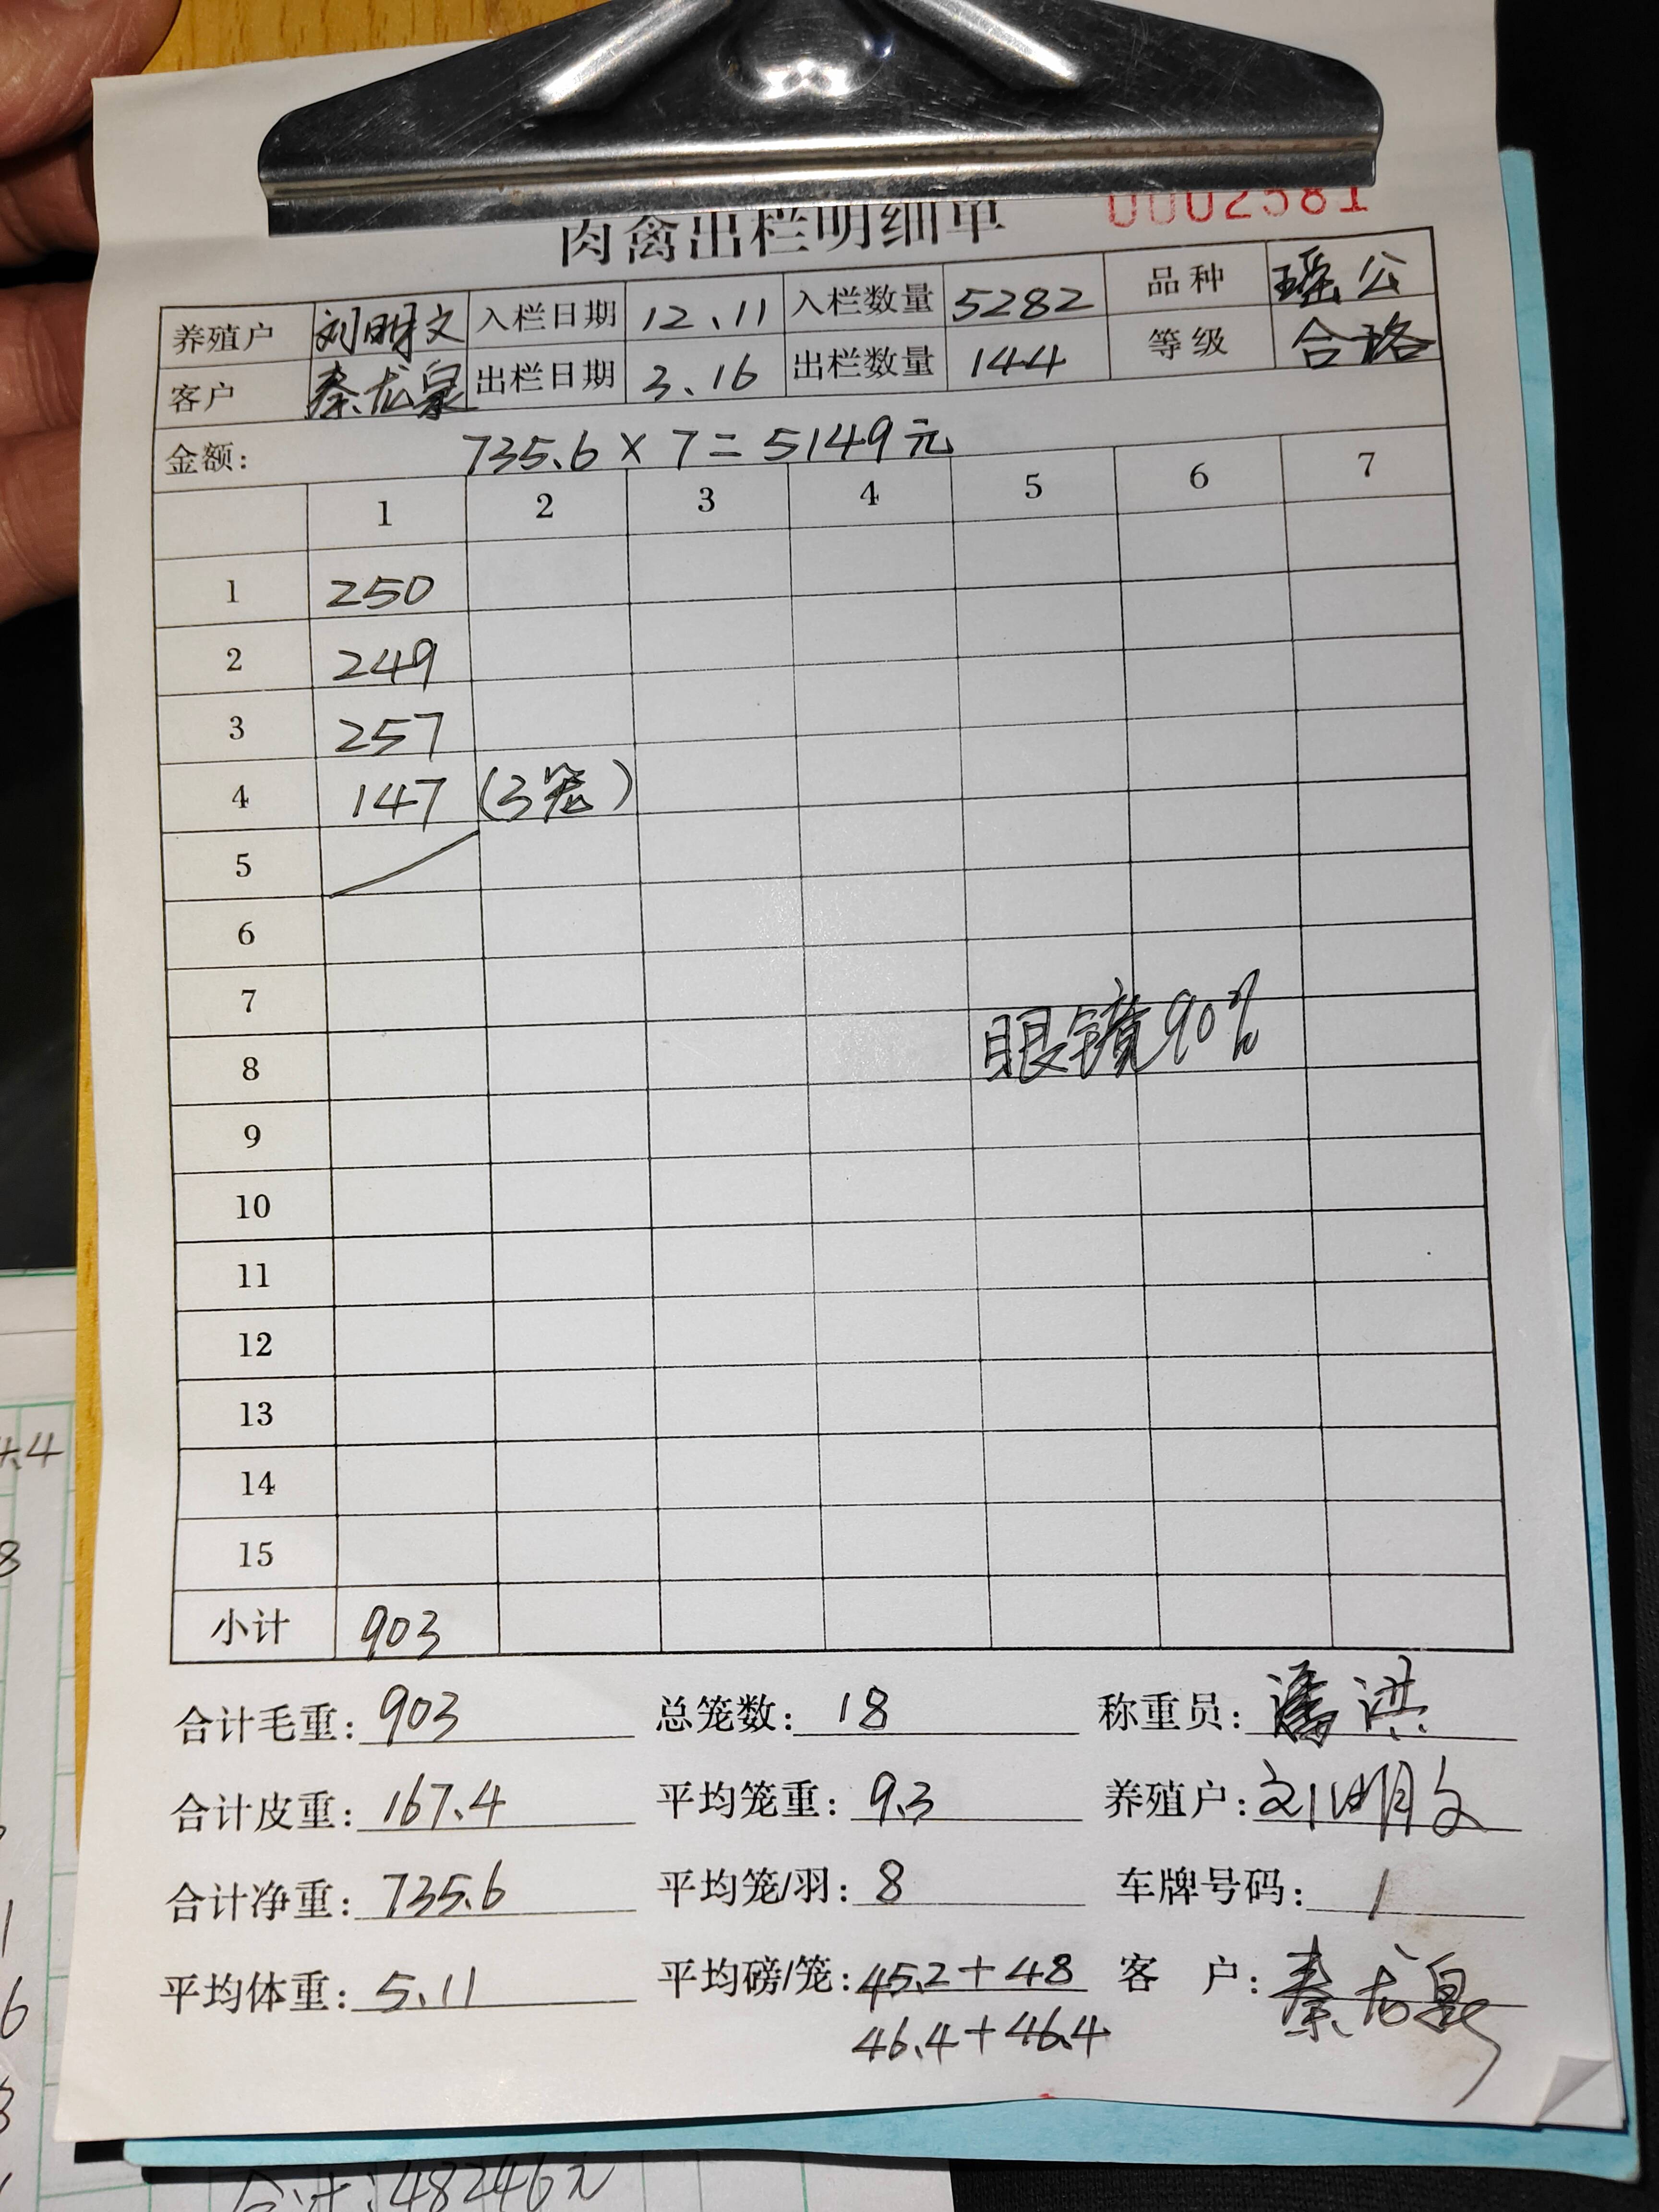 肉禽出栏明细单 0002581
养殖户 刘明文 入栏日期 12.11 入栏数量 5282 品种 瑶公
客户 秦龙泉 出栏日期 3.16 出栏数量 144 等级 合格
金额: 735.6 × 7 = 5149元
1 2 3 4 5 6 7
1 250
2 249
3 257
4 147 (3笼)
5
6
7
8 眼镜90%
9
10
11
12
13
14
15
小计 903
合计毛重: 903 总笼数: 18 称重员: 潘洪
合计皮重: 167.4 平均笼重: 9.3 养殖户: 刘明文
合计净重: 735.6 平均笼/羽: 8 车牌号码: /
平均体重: 5.11 平均磅/笼: 45.2+48 客 户: 秦龙泉
46.4+46.4
合计:48246元